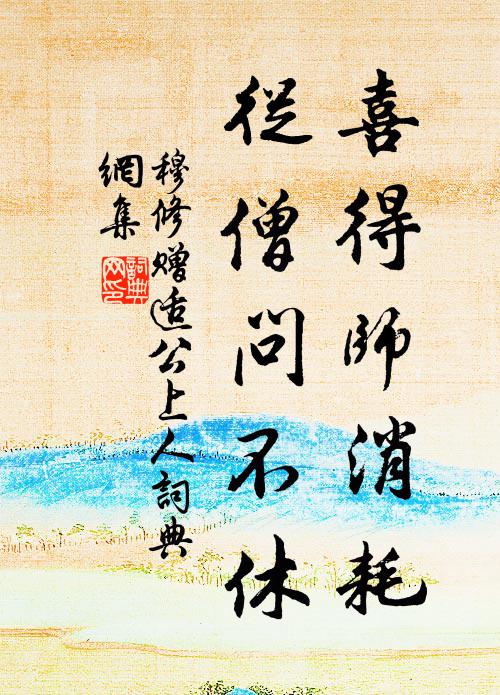 喜得師消耗
從僧問不休
穆修贈适公上人詞典
網集
詞典網印